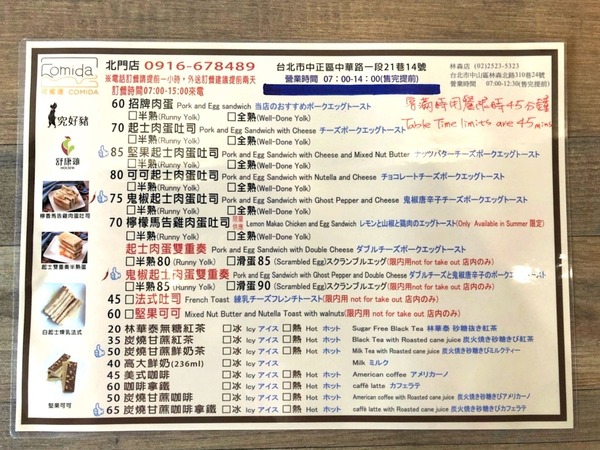 Comida
可蜜達 COMIDA
北門店 0916-678489
※電話訂餐請提前一小時，外送訂餐建議提前兩天
訂餐時間07:00-15:00來電
台北市中正區中華路一段21巷14號
營業時間 07：00-14：00(售完提前)
林森店 (02)2523-5323
台北市中山區林森北路310巷24號
營業時間 07:00-12:30(售完提前)
客滿時用餐限時45分鐘
Table Time limits are 45 mins
究好豬
舒康雞
60 招牌肉蛋 Pork and Egg sandwich 当店のおすすめポークエッグトースト
□半熟(Runny Yolk) □全熟(Well-Done Yolk)
70 起士肉蛋吐司 Pork and Egg Sandwich with Cheese チーズポークエッグトースト
□半熟(Runny Yolk) □全熟(Well-Done Yolk)
85 堅果起士肉蛋吐司 Pork and Egg Sandwich with Cheese and Mixed Nut Butter ナッツバターチーズポークエッグトースト
□半熟(Runny Yolk) □全熟(Well-Done Yolk)
80 可可起士肉蛋吐司 Pork and Egg Sandwich with Nutella and Cheese チョコレートチーズポークエッグトースト
□半熟(Runny Yolk) □全熟(Well-Done Yolk)
75 鬼椒起士肉蛋吐司 Pork and Egg Sandwich with Ghost Pepper and Cheese 鬼椒唐辛子チーズポークエッグトースト
□半熟(Runny Yolk) □全熟(Well-Done Yolk)
70 檸檬馬告雞肉蛋吐司 Lemon Makao Chicken and Egg Sandwich レモンと山椒と鶏肉のエッグトースト(Only Available in Summer 限定)
起士肉蛋雙重奏 Pork and Egg Sandwich with Double Cheese ダブルチーズポークエッグトースト
□半熟80 (Runny Yolk) □滑蛋85 (Scrambled Egg)スクランブルエッグ (限內用not for take out 店内のみ)
鬼椒起士肉蛋雙重奏 Pork and Egg Sandwich with Ghost Pepper and Double Cheese ダブルチーズと鬼椒唐辛子のポークエッグトースト
□半熟85 (Runny Yolk) □滑蛋90 (Scrambled Egg)スクランブルエッグ (限內用not for take out 店内のみ)
45 □法式吐司 French Toast 練乳チーズフレンチトースト(限內用 not for take out 店内のみ)
60 □堅果可可 Mixed Nut Butter and Nutella Toast with walnuts(限內用 not for take out 店内のみ)
20 林華泰無糖紅茶 □冰 Icy アイス □熱 Hot ホット Sugar Free Black Tea 林華泰 砂糖抜き紅茶
35 炭燒甘蔗紅茶 □冰 Icy アイス □熱 Hot ホット Black Tea with Roasted cane juice 炭火焼き砂糖きび紅茶
50 炭燒甘蔗鮮奶茶 □冰 Icy アイス □熱 Hot ホット Milk Tea with Roasted cane juice 炭火焼き砂糖きびミルクティー
40 高大鮮奶(236ml) □冰 Icy アイス □熱 Hot ホット Milk ミルク
45 美式咖啡 □冰 Icy アイス □熱 Hot ホット American coffee アメリカーノ
60 咖啡拿鐵 □冰 Icy アイス □熱 Hot ホット caffè latte カフェラテ
50 炭燒甘蔗咖啡 □冰 Icy アイス □熱 Hot ホット American coffee with Roasted cane juice 炭火焼き砂糖きびアメリカーノ
65 炭燒甘蔗咖啡拿鐵 □冰 Icy アイス □熱 Hot ホット caffè latte with Roasted cane juice 炭火焼き砂糖きびカフェラテ
檸香馬告雞肉蛋吐司
起士雙重奏半熟蛋
白起士煉乳法式
堅果可可